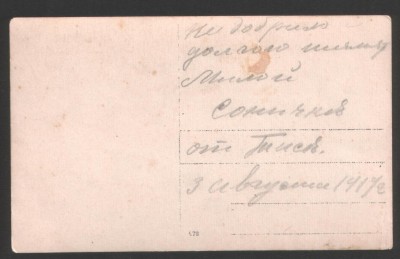 На добрую
долгую память
Милой
Сонички
от Таси.
3 августа 1917 г